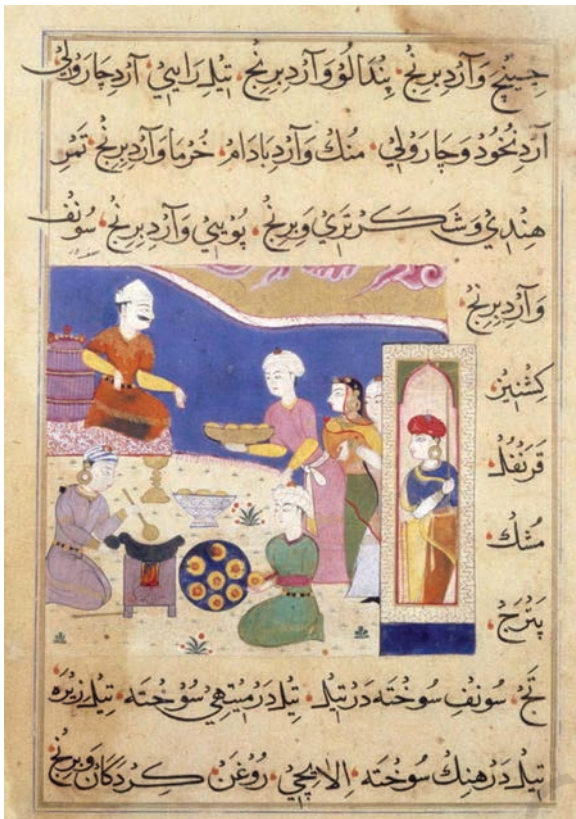 جیپنج وَآردِبرنج، پِنْدَالُوْ وَآردِبِرِنج، تیلِ رَایِيْ، آردِ چَارُولِيْ
آردِنَخُود وَچَارَوُلِيْ، منك وَ آردِبَادَامْ، خُرمَا وَآردِبِرِنج، تَمَرِ
هِنْدِيْ وَ شَكَرتَرِيْ وَبِرِنج، پوُیِيْ وَ آردِبِرِنج، سُونْف
وَآردِبِرِنج،
کشنِیز
قَرَنْفُل،
مُشْك
پَتْرَج
تَج، سُونف سوُخته دَرتیل، تیل دَرمیتهِيْ سوُخته، تیل زِیرَه
تیل دَرهِنك سوُخته، اِلَایِچِيْ، رُوْغَنِ کِردکَان وَ بِرِنج